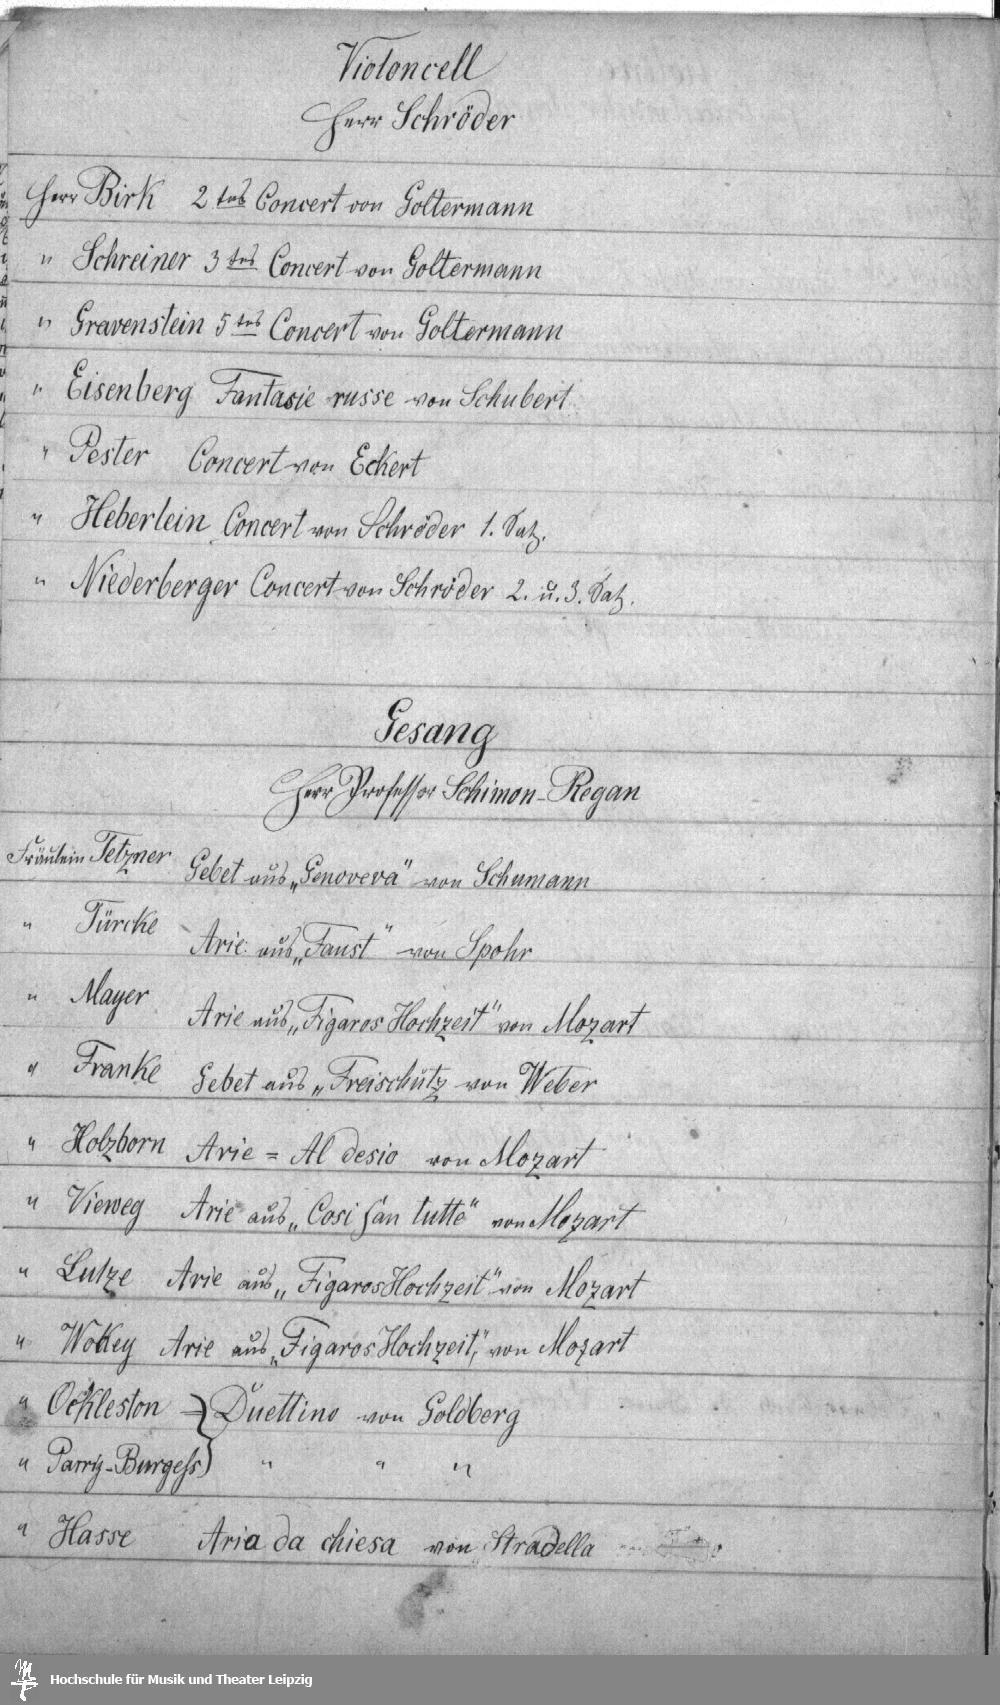 Violoncell
Herr Schröder
Herr Birk 2tes Concert von Goltermann
" Schreiner 3tes Concert von Goltermann
" Gravenstein 5tes Concert von Goltermann
" Eisenberg Fantasie russe von Schubert
" Pester Concert von Eckert
" Heberlein Concert von Schröder 1. Satz.
" Niederberger Concert von Schröder 2. u. 3. Satz.
Gesang
Herr Professor Schimon-Regan
Fräulein Tetzner Gebet aus „Genoveva" von Schumann
" Türcke Arie aus „Faust" von Spohr
" Mayer Arie aus „Figaros Hochzeit" von Mozart
" Franke Gebet aus „Freischütz von Weber
" Holzborn Arie = Al desio von Mozart
" Vieweg Arie aus „Cosi fan tutte" von Mozart
" Lutze Arie aus „Figaros Hochzeit" von Mozart
" Wokey Arie aus „Figaros Hochzeit„ von Mozart
" Ockleston } Duettino von Goldberg
" Parry-Burgess } " " "
" Hasse Aria da chiesa von Stradella
Hochschule für Musik und Theater Leipzig